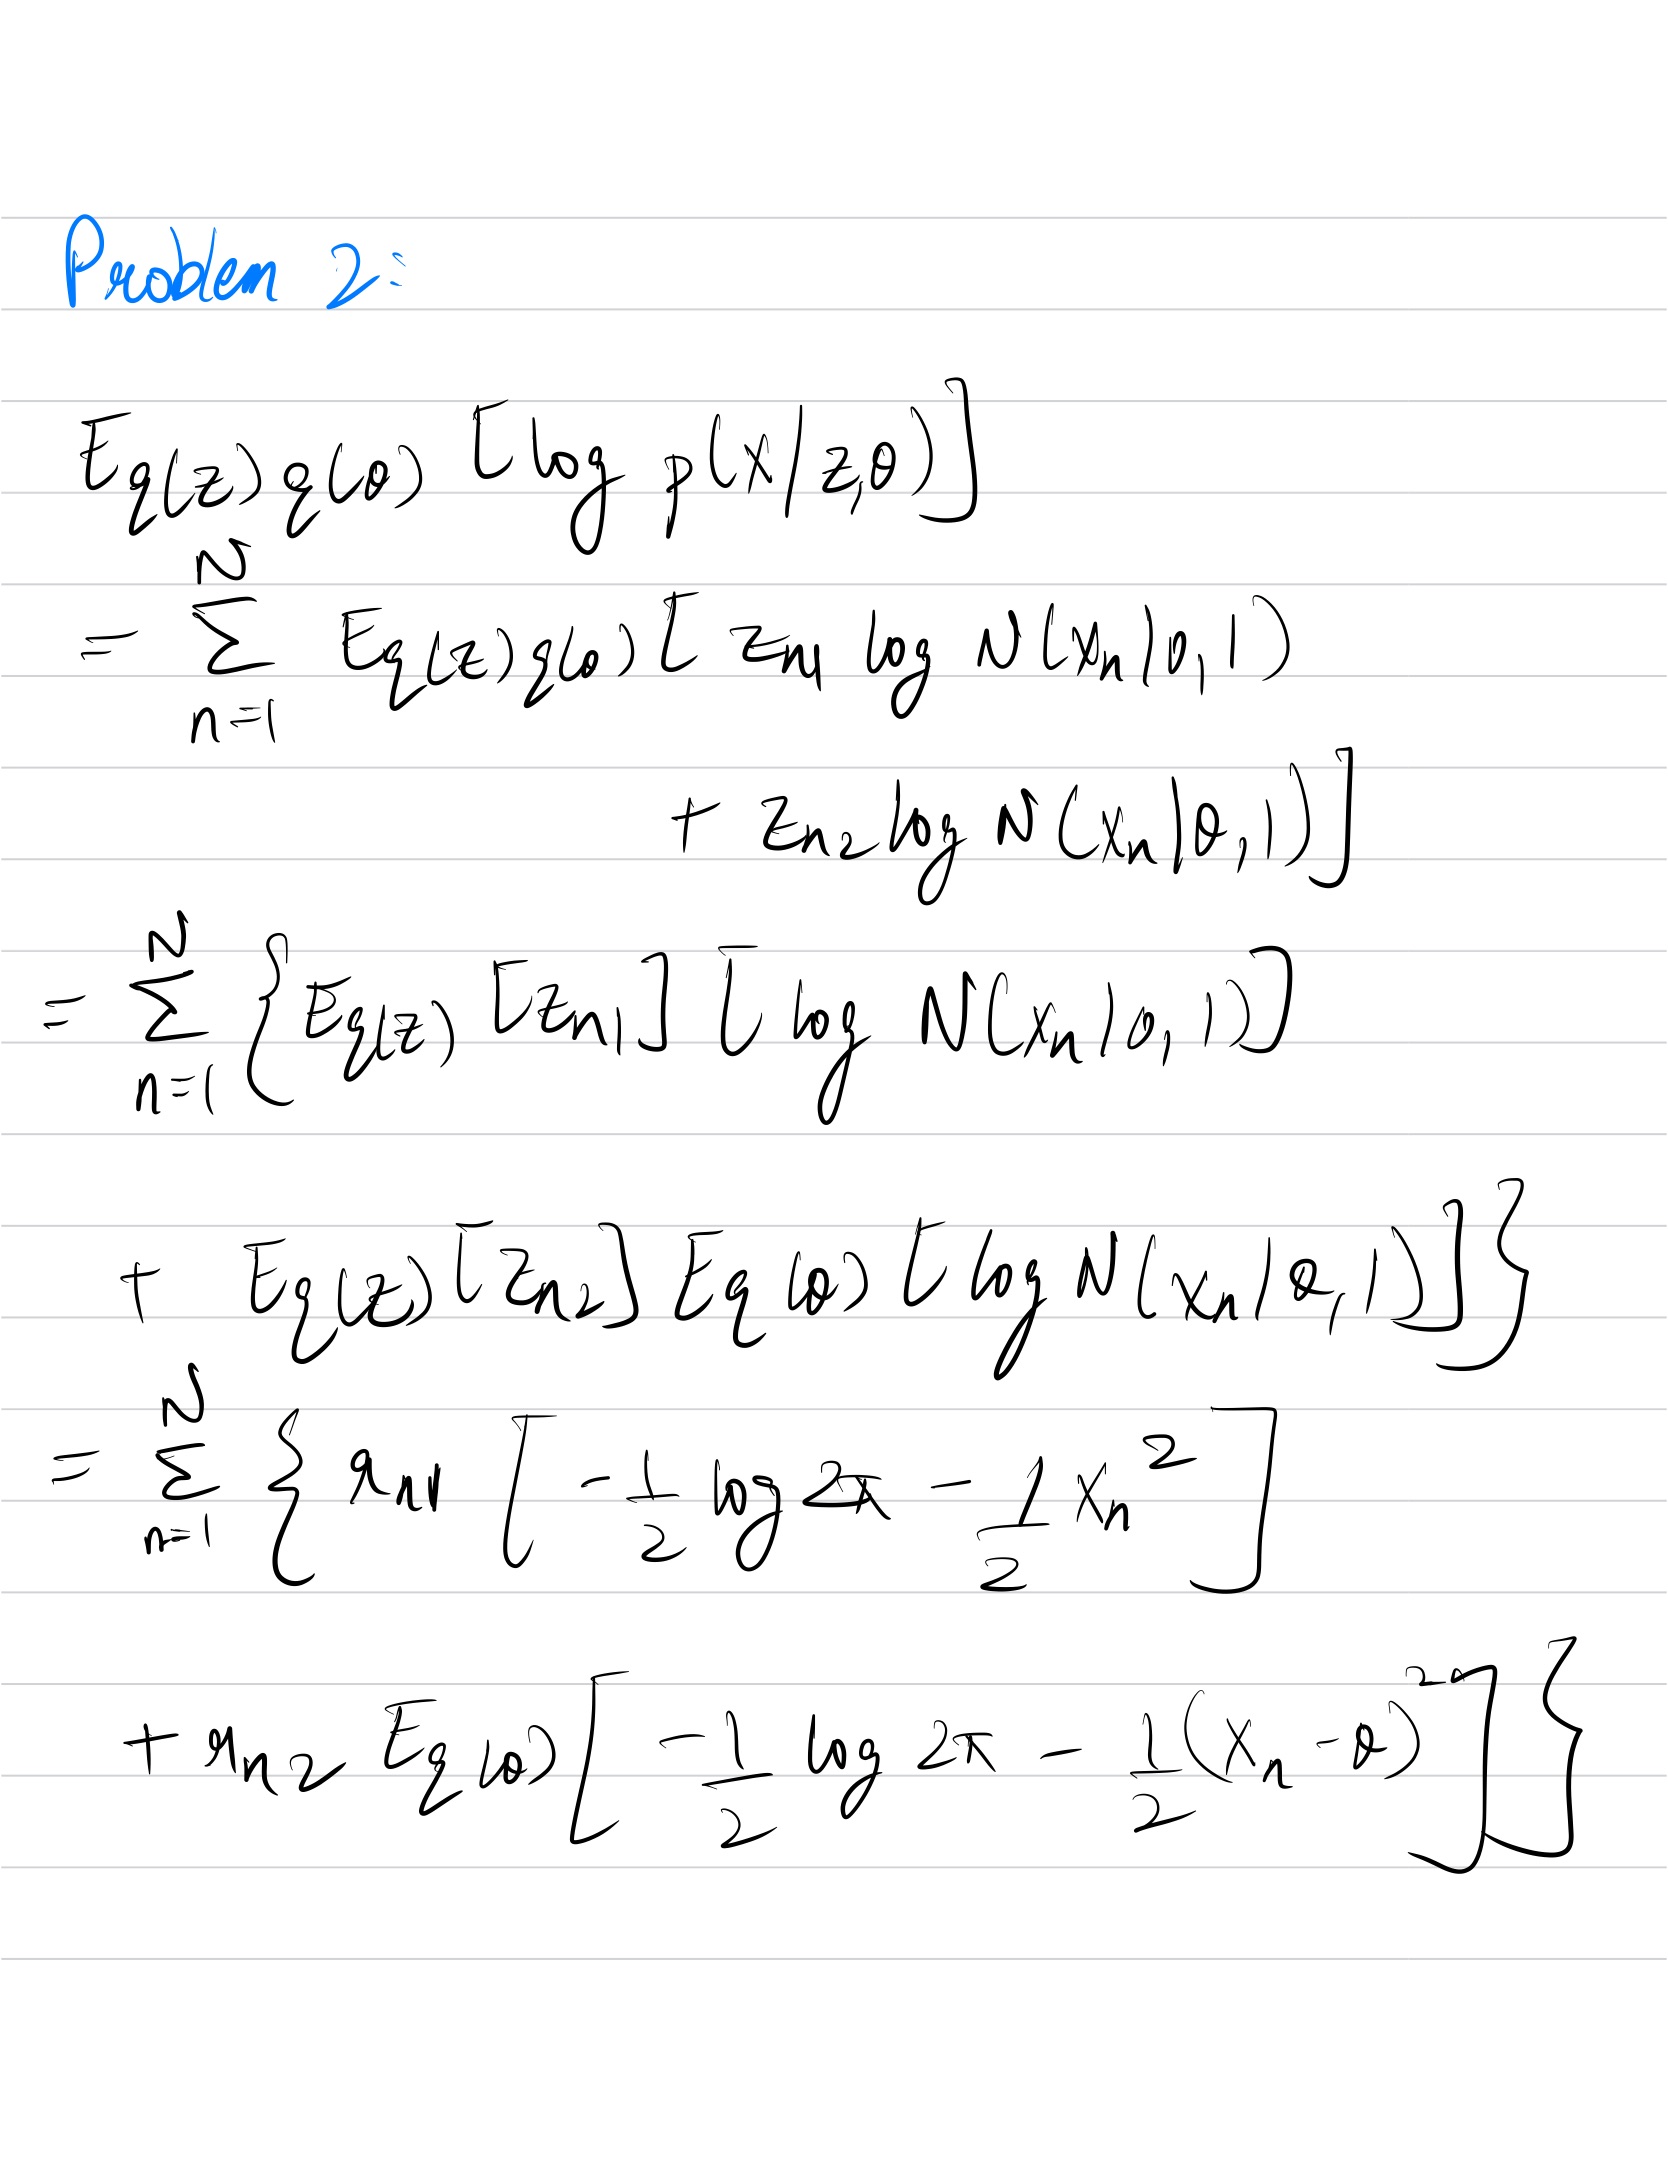 Problem 2:
E_{q(z)q(θ)} [log p(x|z,θ)]
= \sum_{n=1}^{N} E_{q(z)q(θ)} [z_{n1} log N(x_n|0,1)
+ z_{n2} log N(x_n|θ,1)]
= \sum_{n=1}^{N} { E_{q(z)} [z_{n1}] [log N(x_n|0,1)]
+ E_{q(z)} [z_{n2}] E_{q(θ)} [log N(x_n|θ,1)] }
= \sum_{n=1}^{N} { r_{n1} [ -\frac{1}{2} log 2π - \frac{1}{2} x_n^2 ]
+ r_{n2} E_{q(θ)} [ -\frac{1}{2} log 2π - \frac{1}{2} (x_n - θ)^2 ] }